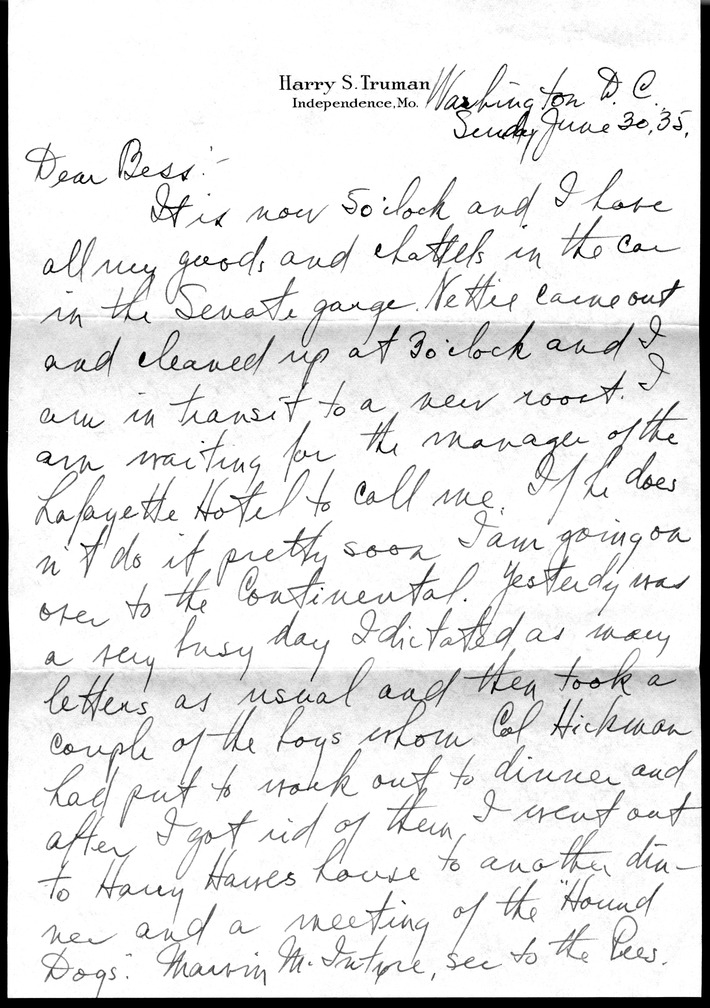 Harry S. Truman
Independence, Mo.
Washington D.C.
Sunday June 30, 35.
Dear Bess:-
It is now 5 o'clock and I have
all my goods and chattels in the car
in the Senate garage. Nettie came out
and cleaned up at 3 o'clock and I
am in transit to a new roost. I
am waiting for the manager of the
Lafayette Hotel to call me. If he does
n't do it pretty soon I am going on
over to the Continental. Yesterdy was
a very busy day I dictated as many
letters as usual and then took a
couple of the boys whom Col Hickman
had put to work out to dinner and
after I got rid of them, I went out
to Harry Hawes house to another din-
ner and a meeting of the "Hound
Dogs". Marvin McIntyre, sec to the Pres.